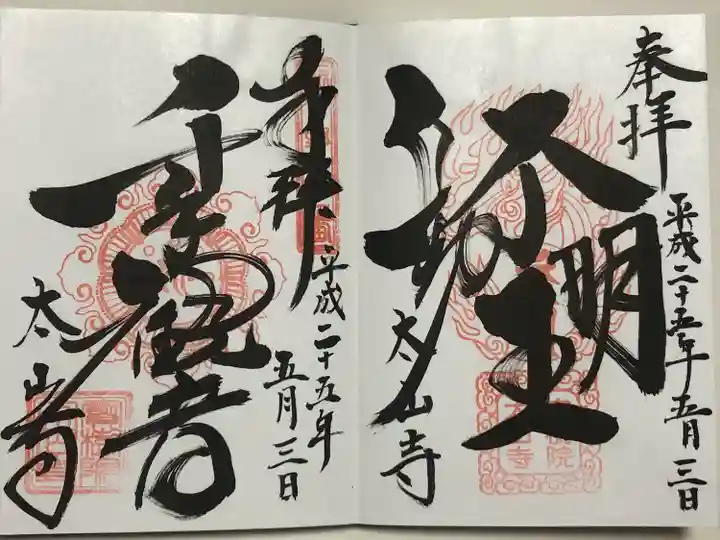 奉拝
平成二十五年五月三日
不動明王
太山寺
奉拝
平成二十五年
五月三日
千手観音
太山寺